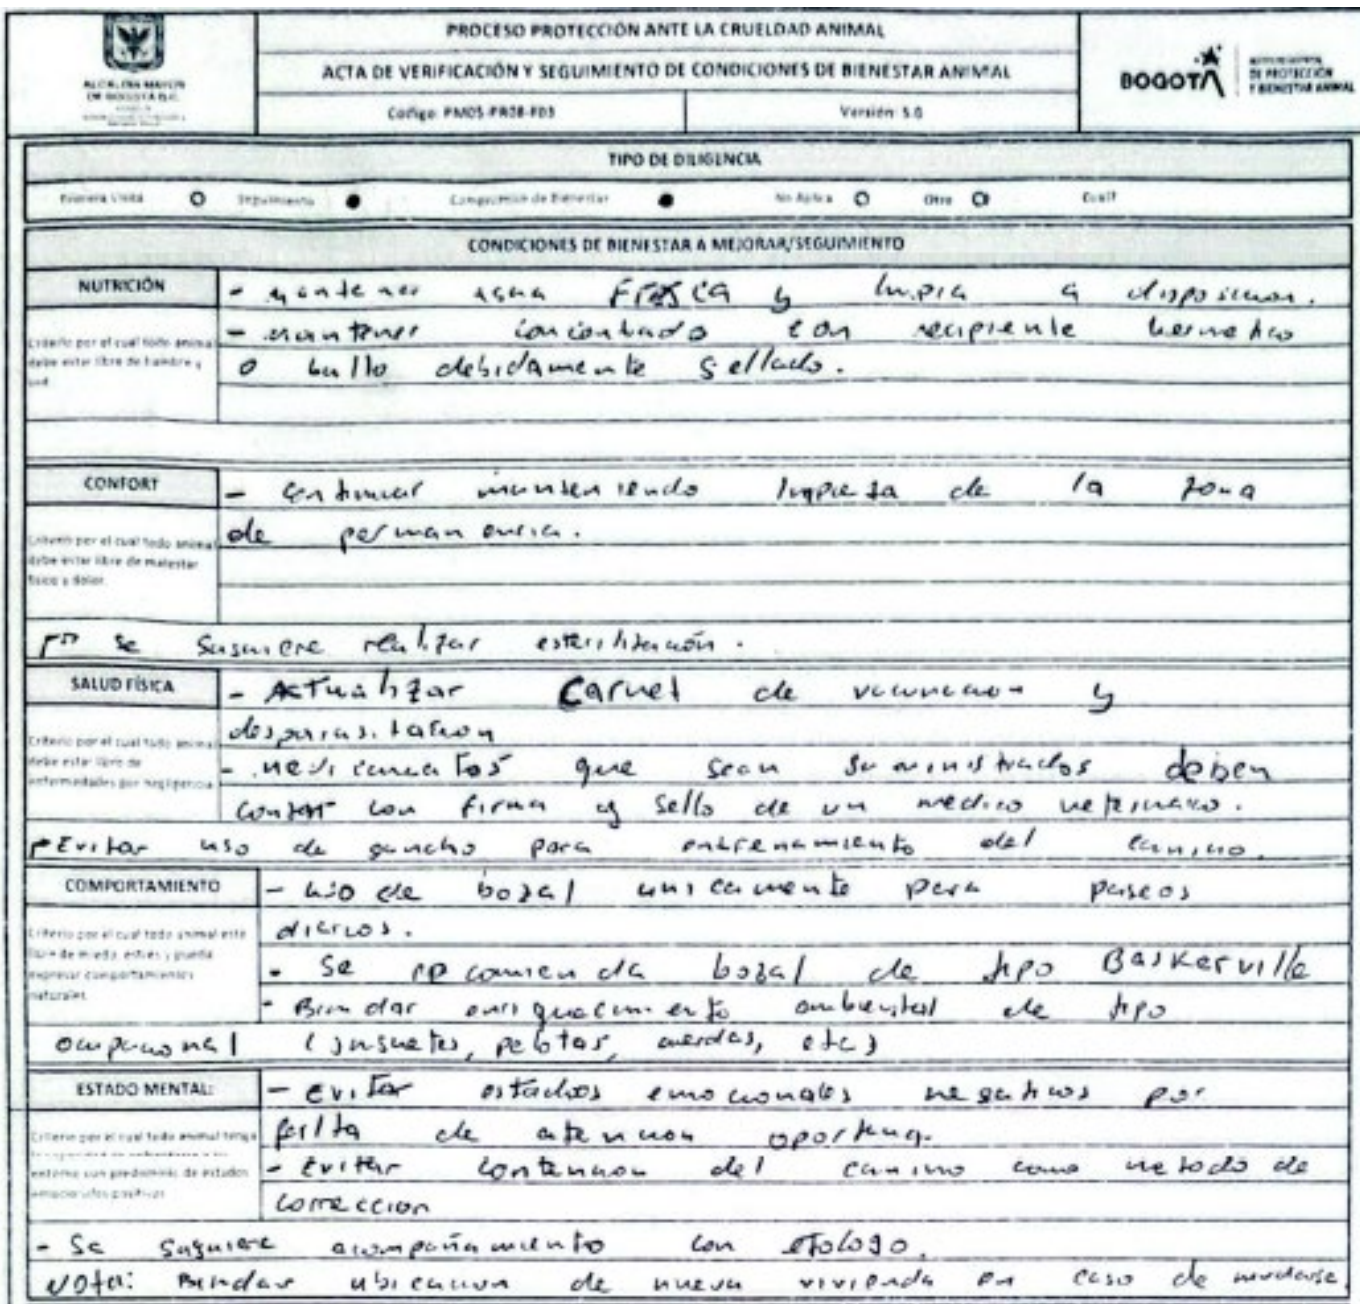 ALCALDÍA MAYOR
DE BOGOTÁ D.C.
PROCESO PROTECCIÓN ANTE LA CRUELDAD ANIMAL
ACTA DE VERIFICACIÓN Y SEGUIMIENTO DE CONDICIONES DE BIENESTAR ANIMAL
Código: PM05-PR08-F03
Versión: 5.0
BOGOTÁ
DE PROTECCIÓN
Y BIENESTAR ANIMAL
TIPO DE DILIGENCIA
Primera Visita Seguimiento Compromiso de Bienestar No Aplica Otro Cuál?
CONDICIONES DE BIENESTAR A MEJORAR/SEGUIMIENTO
NUTRICIÓN
Criterio por el cual todo animal
debe estar libre de hambre y
sed
- mantener agua FresCa y limpia a disposicion.
- mantener concentrado con recipiente hermetico
o bulto debidamente sellado.
CONFORT
Criterio por el cual todo animal
debe estar libre de malestar
físico y dolor
- continuar manteniendo limpieza de la zona
de permanencia.
se sugiere realizar esterilización.
SALUD FÍSICA
Criterio por el cual todo animal
debe estar libre de
enfermedades por negligencia
- Actualizar Carnet de vacunacion y
desparasitacion
- medicamentos que sean suministrados deben
contar con firma y sello de un medico veterinario.
Evitar uso de gancho para entrenamiento del canino.
COMPORTAMIENTO
Criterio por el cual todo animal esté
libre de miedo, estrés y pueda
expresar comportamientos
naturales
- uso de bozal unicamente para paseos
diarios.
- Se recomienda bozal de tipo Baskerville
- Brindar enriquecimiento ambiental de tipo
ocupacional (juguetes, pelotas, cuerdas, etc)
ESTADO MENTAL:
Criterio por el cual todo animal tenga
entorno con predominio de estados
emocionales positivos
- Evitar estados emocionales negativos por
falta de atencion oportuna.
- Evitar contencion del canino como metodo de
correccion
- Se sugiere acompañamiento con etologo.
Nota: Brindar ubicacion de nueva vivienda en caso de mudarse.